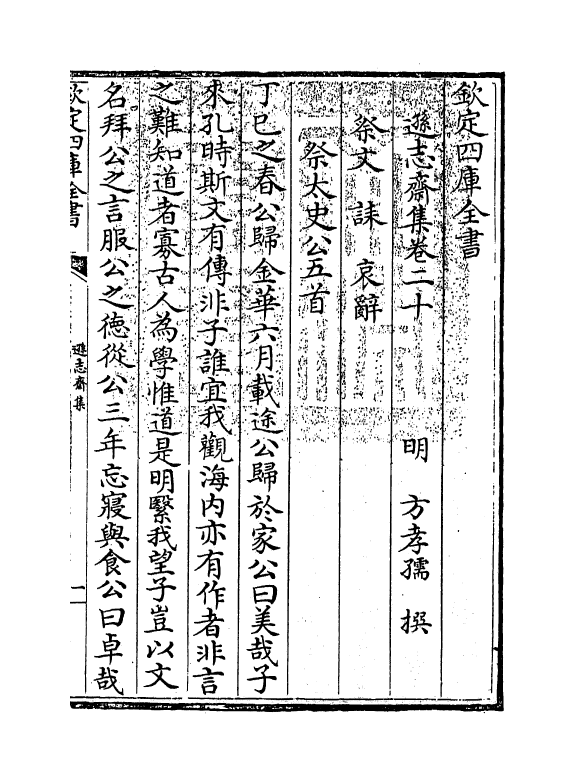 欽定四庫全書
遜志齋集卷二十
明 方孝孺 撰
祭文 誄 哀辭
祭太史公五首
丁巳之春公歸金華六月載途公歸於家公曰美哉子
來孔時斯文有傳非子誰宜我觀海内亦有作者非言
之難知道者寡古人為學惟道是明繄我望子豈以文
名拜公之言服公之德從公三年忘寢與食公曰卓哉
欽定四庫全書
遜志齋集
一